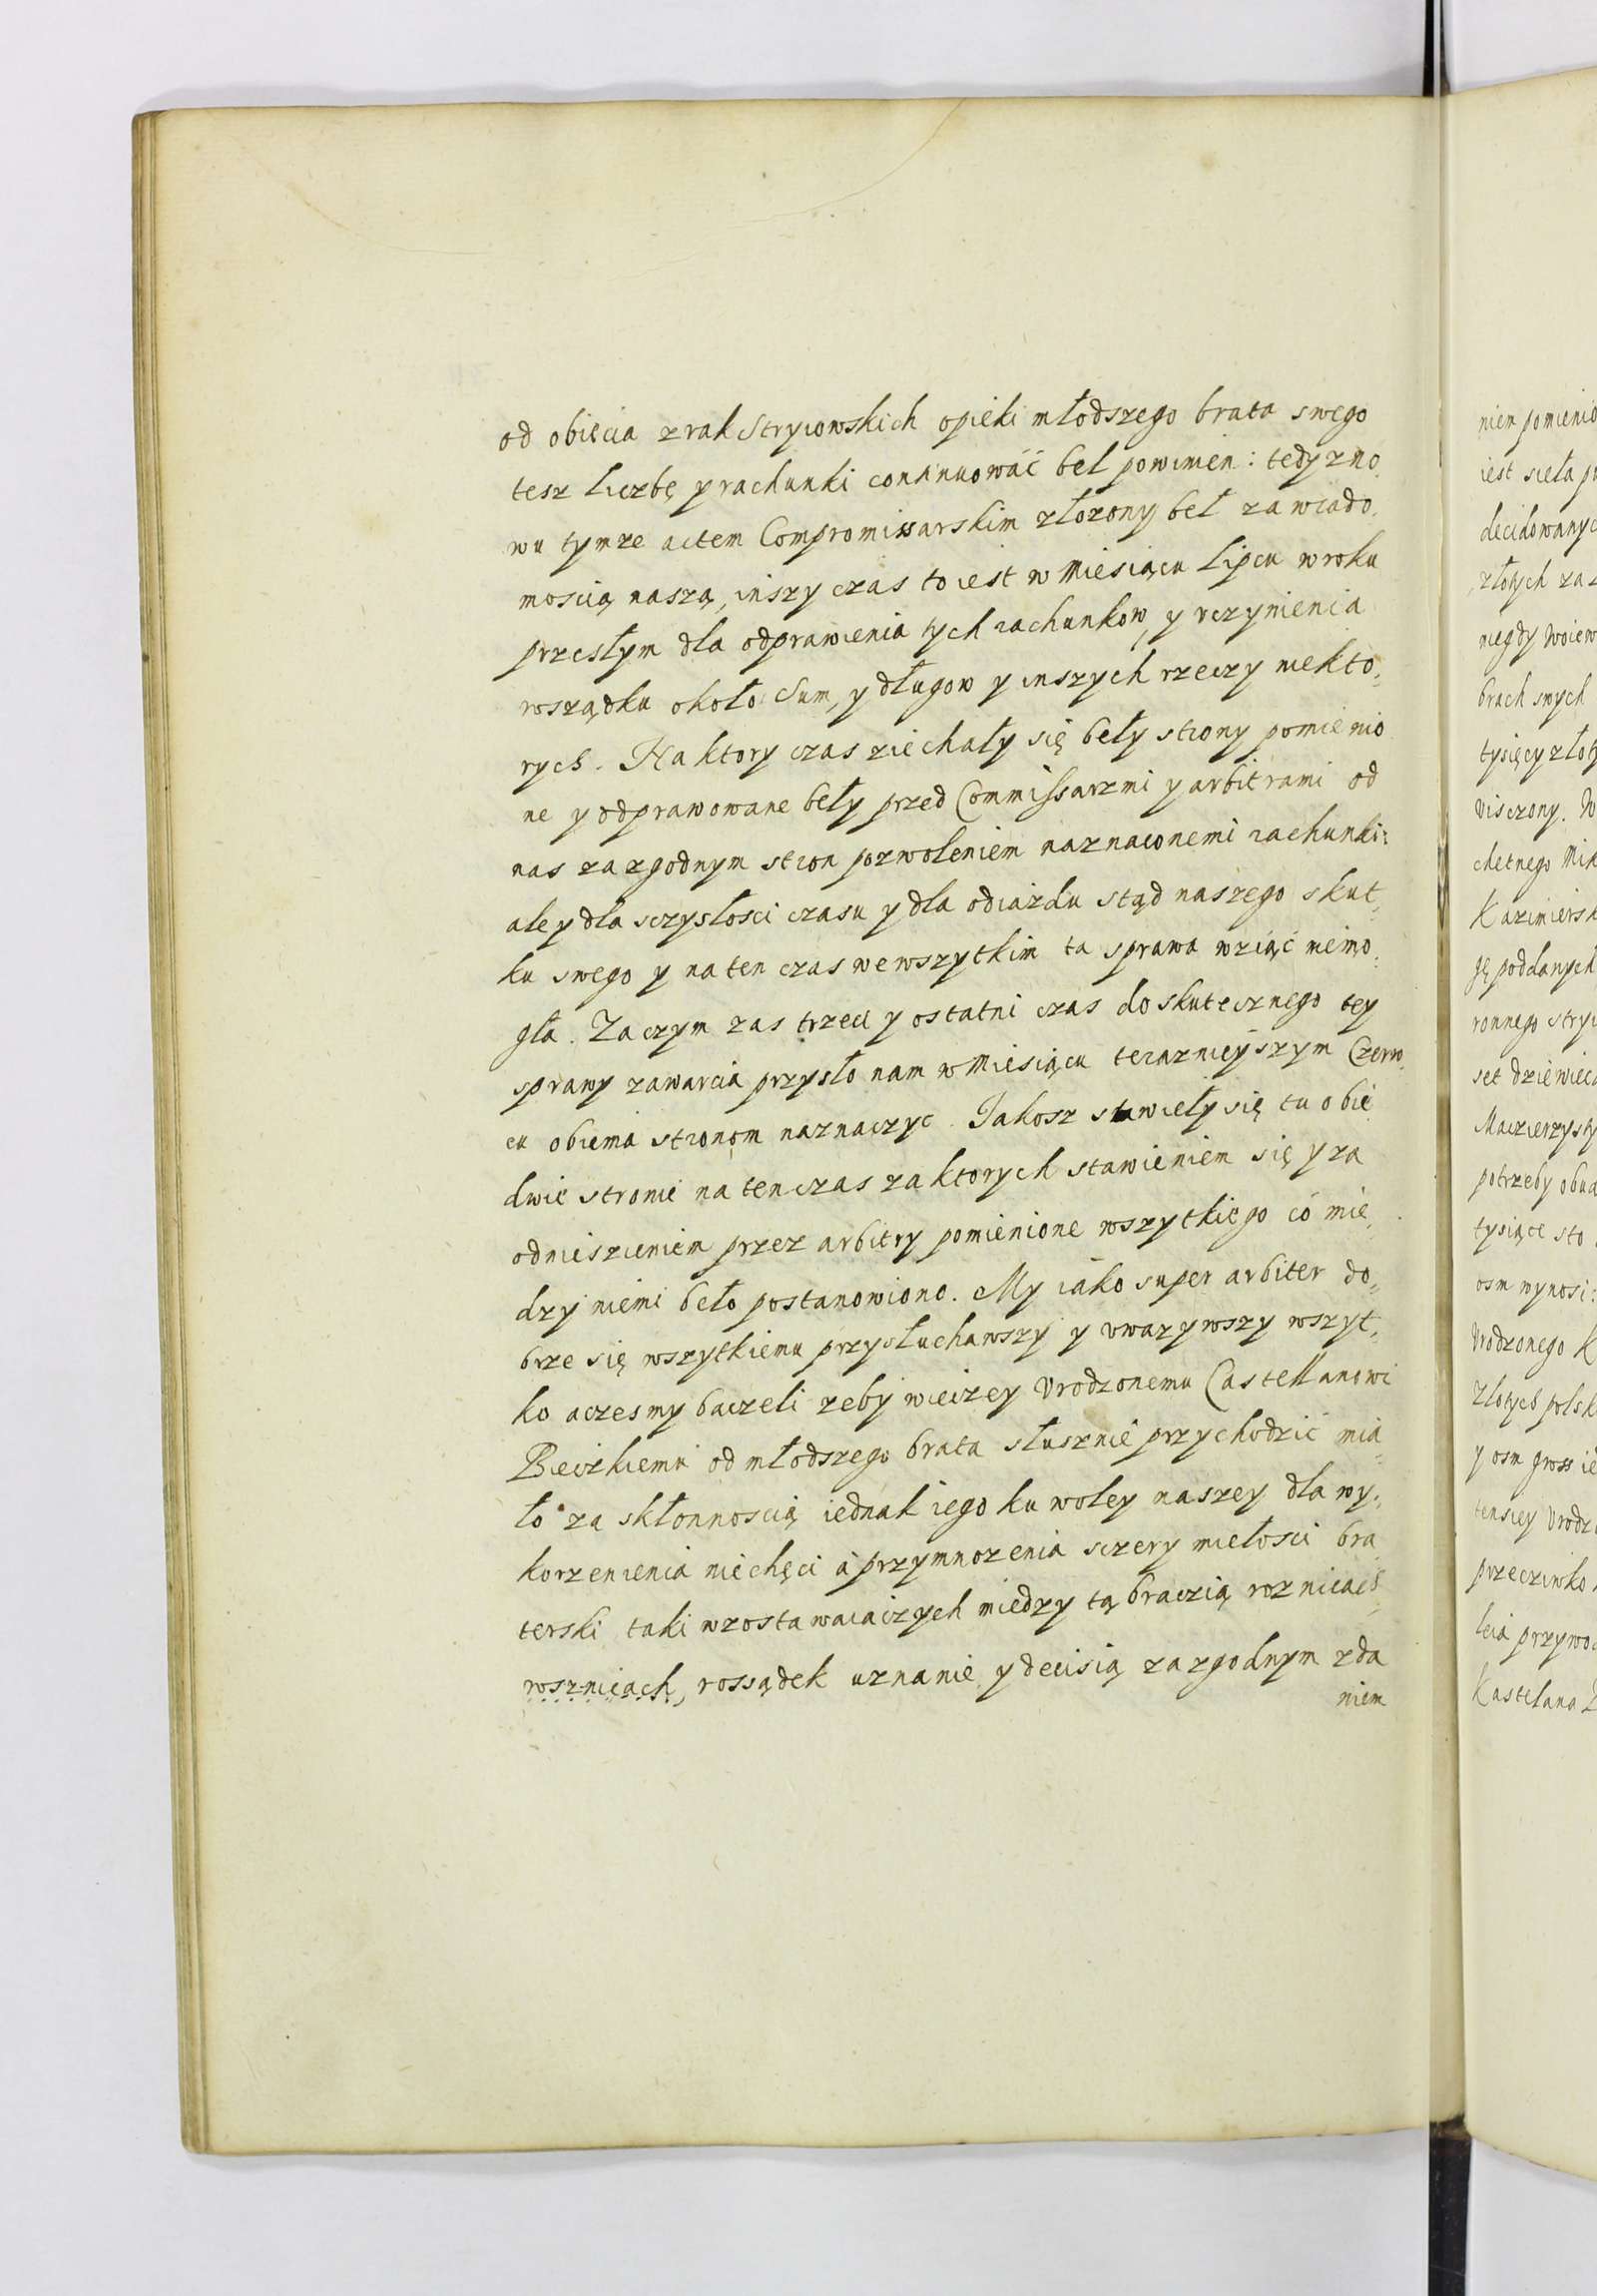 od obięcia z rak Stryiowskich opieki młodszego brata swego
tesz liczbę y rachunki continuować beł powinien: tedy zno
wu tymze actem Compromissarskim złozony beł za wiado,
moscią naszą, inszy czas to iest w Miesiącu Lipcu w roku
przesłym dla odprawienia tych rachunkow, y uczynienia
rosządku około Sum, y długow y inszych rzeczy niekto,
rych. Na ktory czas ziechały się beły strony pomienio
ne y odprawowane beły przed Commissarzmi y arbitrami od
nas za zgodnym stron pozwoleniem naznaconemi rachunki:
ale y dla sczysłosci czasu y dla odiazdu stąd naszego skut,
ku swego y na ten czas we wszytkim ta sprawa wziąć niemo,
gła. Zaczym zas trzeci y ostatni czas do skutecznego tey
sprawy zawarcia przysło nam w Miesiącu teraznieyszym Czerw,
cu obiema stronom naznaczyc. Jakosz stawieły się tu obie
dwie stronie na ten czas za ktorych stawieniem się y za
odniesieniem przez arbitry pomienione wszytkiego co mie,
dzy niemi beło postanowiono. My iako super arbiter do,
brze się wszytkiemu przysłuchawszy y uwazywszy wszyt,
ko aczesmy baczeli zeby wieczey Urodzonemu Castellanowi
Bieczkiemu od młodszego brata słusznie przychodzić mia,
ło za skłonnoscią iednak iego ku woley naszey dla wy,
korzenienia niechęci a przymnozenia sczery miełosci bra
terski taki wzostawaiaczych miedzy tą braczią roznicach
rosznicach, rossądek uznanie y decisią za zgodnym zda
niem
nien pomienio
iest
decidowanyc
złotych za
niegdy Woiew
brach swych
tysięcy złot
chetnego Mik
Kazimiersk
gę poddanych
ronnego stry
set dziewięc
Macierzysty
potrzeby obu
tysiące sto
osm wynosi:
Urodzonego K
Złotych polsk
y osm gross ie
Urodz
przeciwko
przywo
Kastelana